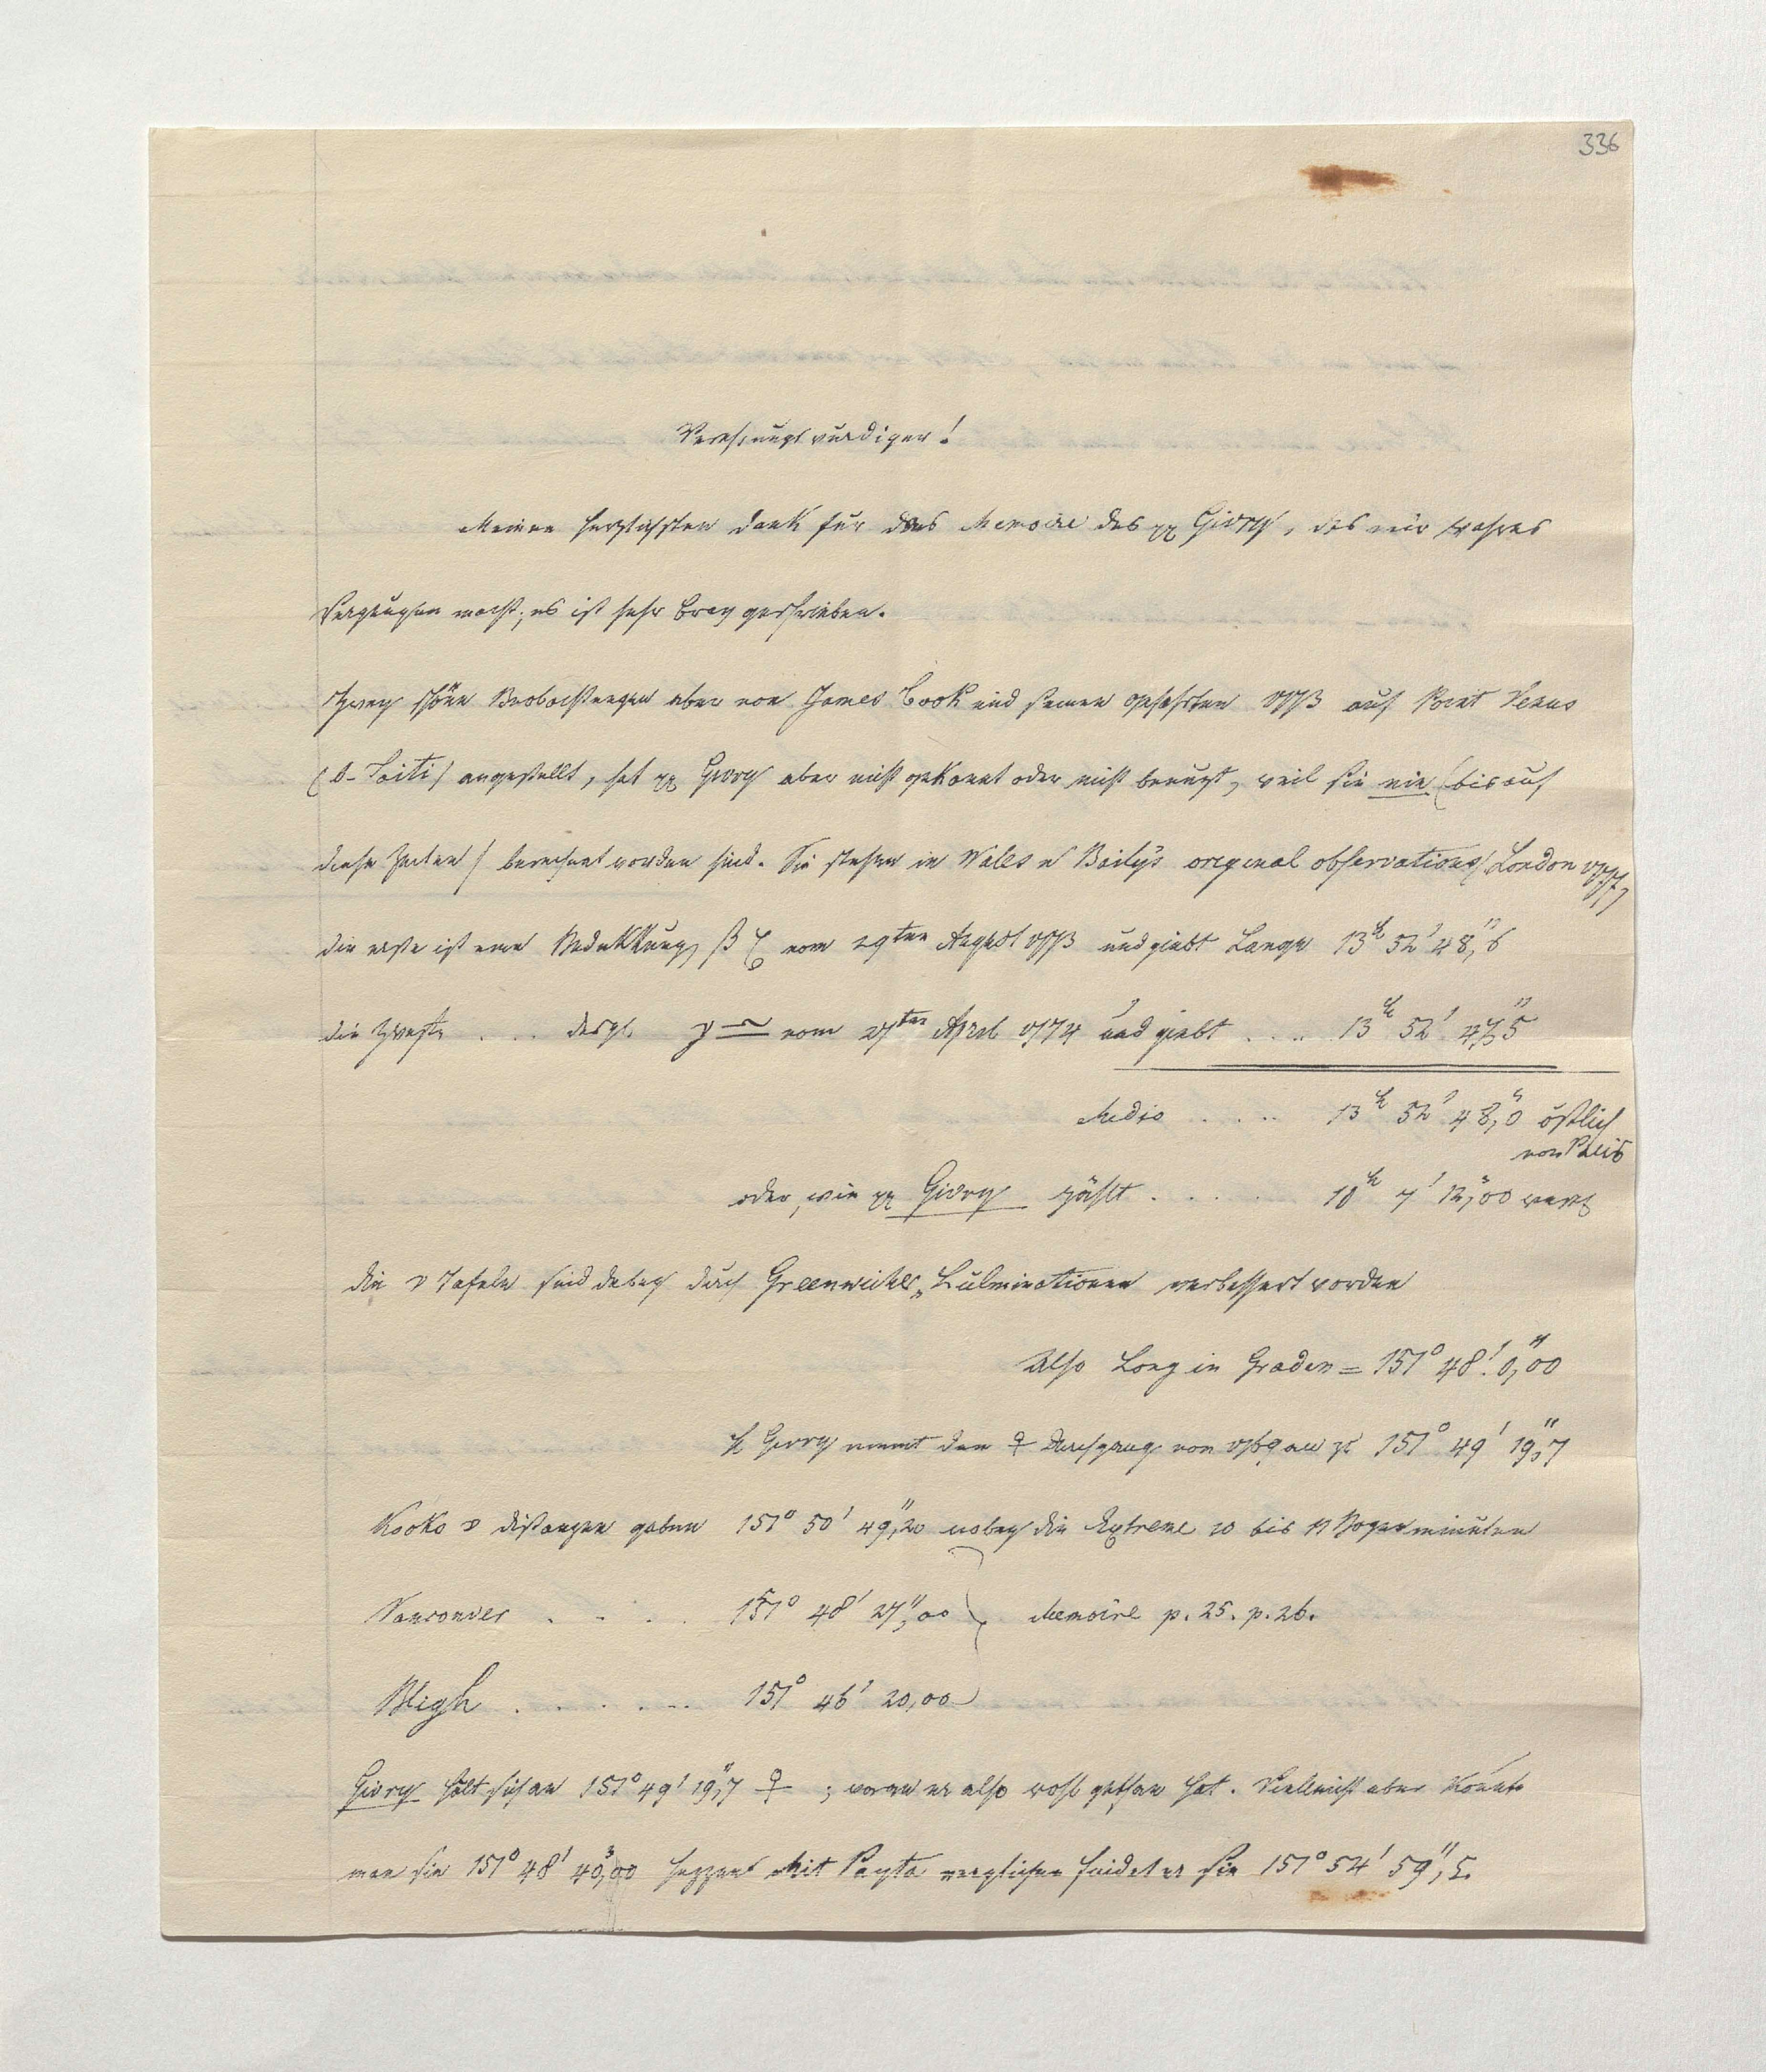 336
Verehrungswurdiger!
Meinen herzlichsten Dank fur das Memoire des H Givry, das mir wahres
Vergnugen macht; es ist sehr brav geschrieben.
Zwey schöne Beobachtungen aber von James Cook und seinen Gefehrten 1773 auf Point Venus
(O-Taiti) angestellt, hat H Givry aber nicht gekannt oder nicht benuzt, weil sie nie (bis auf
diese Zeiten) berechnet worden sind. Sie stehen in Wales u Baily's original observations, London 1777
die erste ist eine Bedekkung β vom 29ten August 1773 und giebt Lange 13h 52' 48,"6
die Zweyte . . . desgl. γ ♎ vom 27ten April 1774 und giebt . . . . 13h 52' 47,"5
Medio . . . . 13h 52' 48,"0 östlich
von Paris
oder, wie H Givry zählt . . . . . 10h 7' 12,"00 west
die ☽ Tafeln sind dabey durch Greenwicher Culminationen verbessert worden
Also Long in Graden = 151° 48' 0,"00
H Givry nimmt den ♀ Durchgang von 1769 an zu 151° 49' 19,"7
Kooks ☽ distanzen geben 151° 50' 49,"20 wobey die Extreme 10 bis 11 Bogenminuten
Vancouver . . . . 151° 48' 27,"00 } Memoire p. 25. p. 26.
Bligh . . . . . . 151° 46' 20,00
Givry hält sich an 151° 49' 19,"7 ♀ ; woran er also wohl gethan hat. Vielleicht aber konnte
man sie 151° 48' 40,"00 sezzen Mit Payta verglichen findet er sie 151° 54' 59,"5.